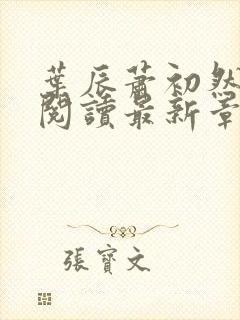 葉辰蕭初然
閱讀最新章
張寶文